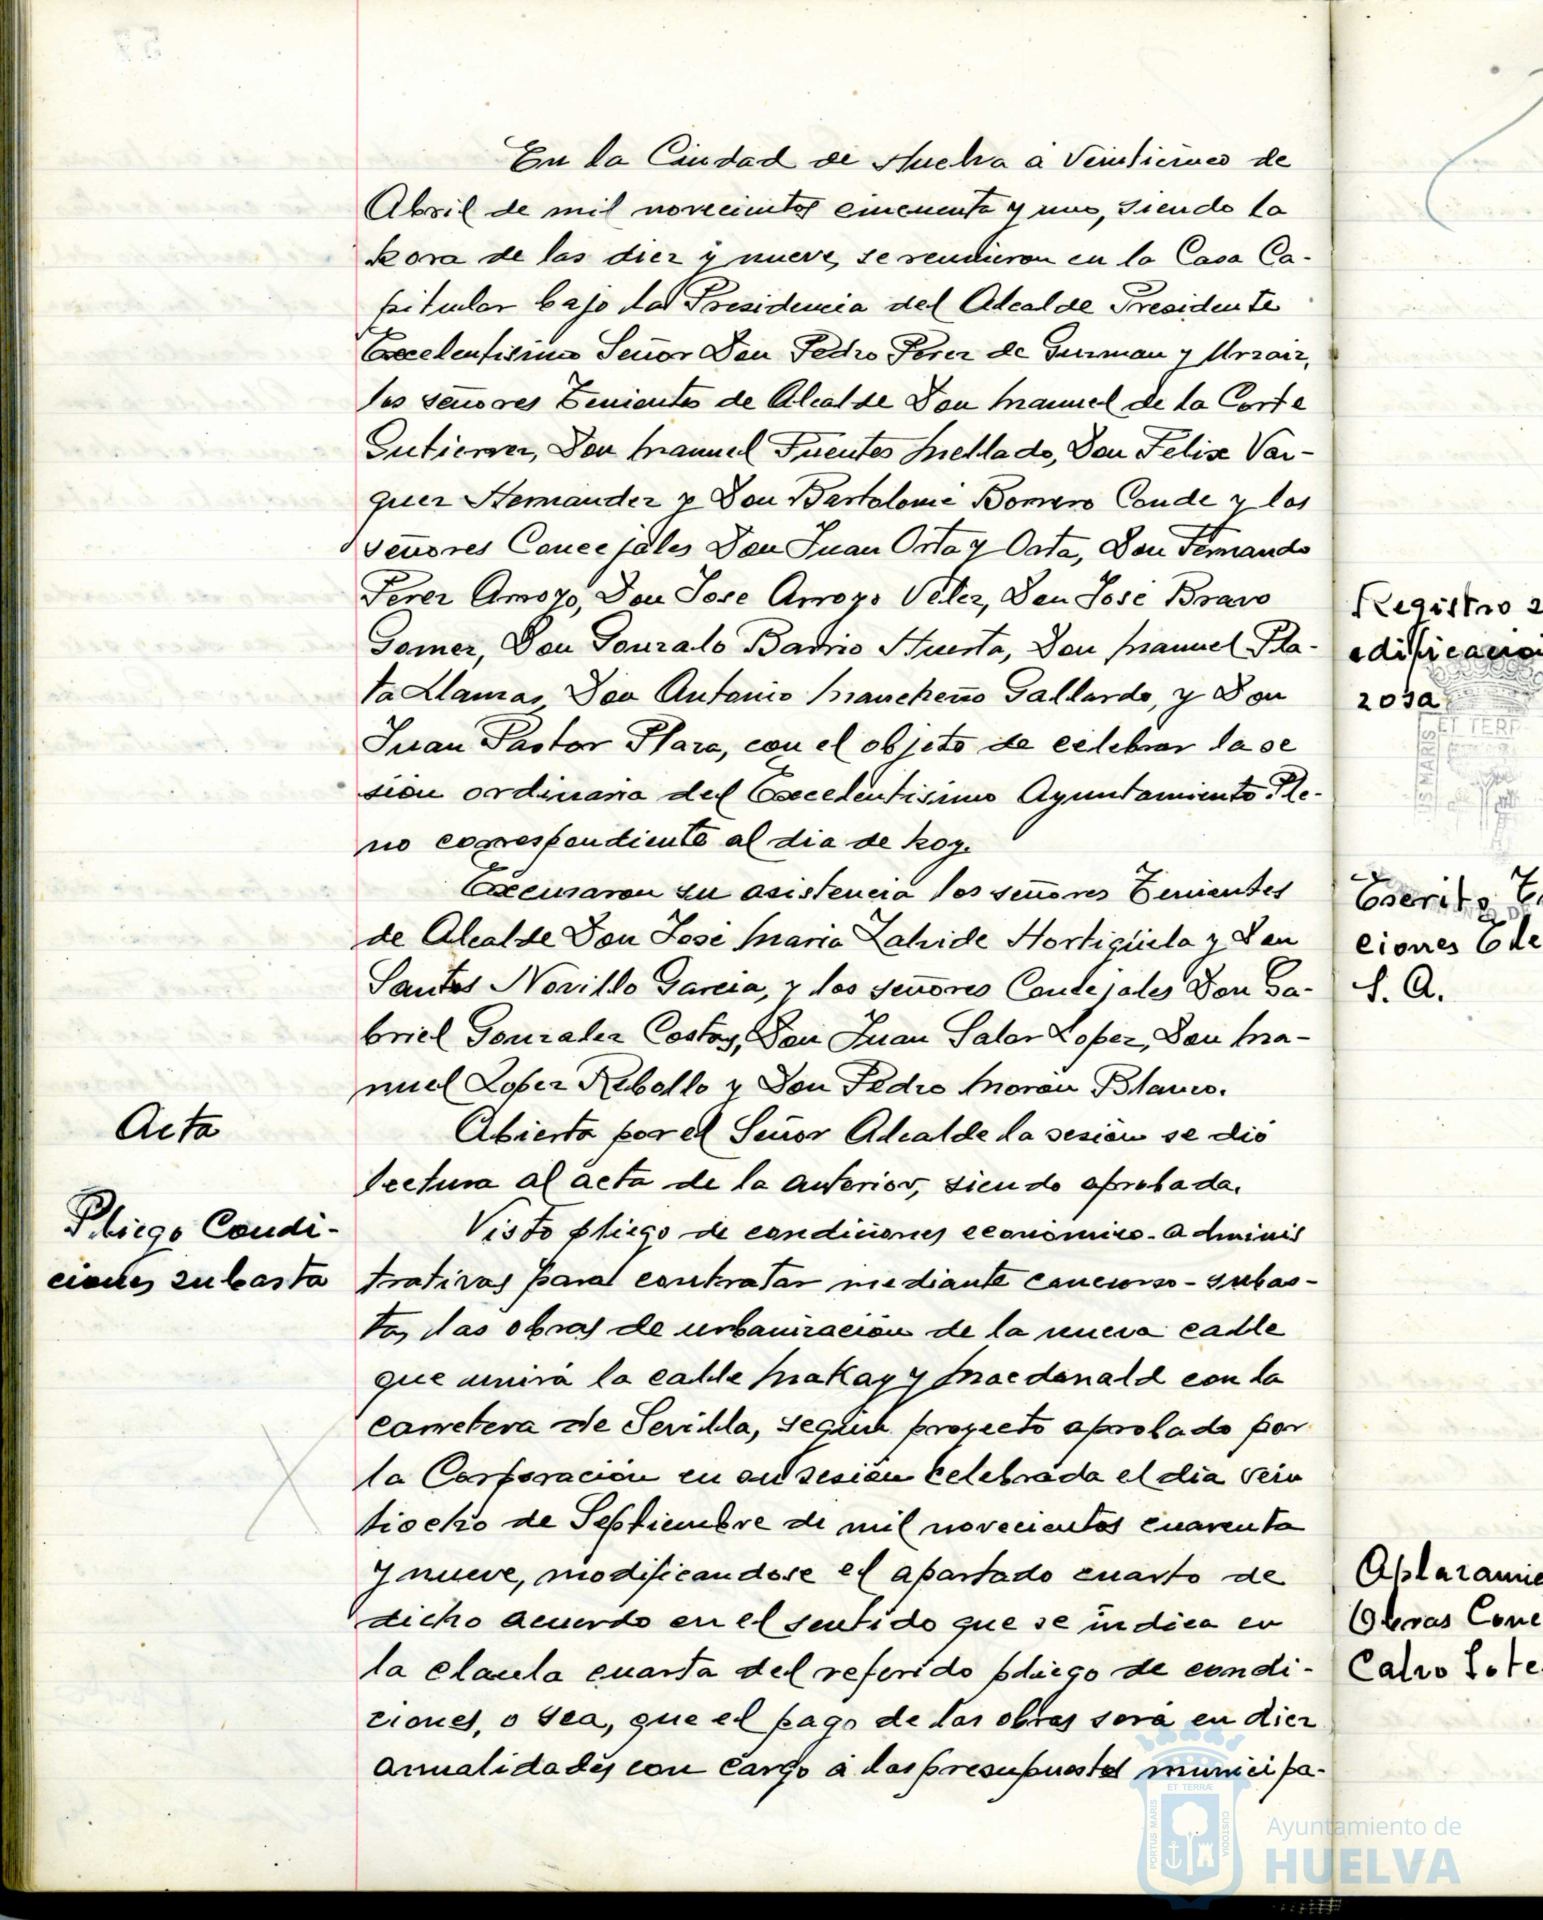 En la Ciudad de Huelva a veinticinco de
Abril de mil novecientos cincuenta y uno, siendo la
hora de las diez y nueve, se reunieron en la Casa Ca-
pitular bajo la Presidencia del Alcalde Presidente
Excelentisimo Señor Don Pedro Perez de Guzman y Urzaiz,
los señores Tenientes de Alcalde Don Manuel de la Corte
Gutierrez, Don Manuel Fuentes Mellado, Don Felix Vaz-
quez Hernandez y Don Bartolomé Borrero Conde y los
señores Concejales Don Juan Orta y Orta, Don Fernando
Perez Arroyo, Don Jose Arroyo Velez, Don José Bravo
Gomez, Don Gonzalo Barrio Huerta, Don Manuel Pla-
ta Llamas, Don Antonio Mancheño Gallardo, y Don
Juan Pastor Plaza, con el objeto de celebrar la se
sión ordinaria del Excelentisimo Ayuntamiento Ple-
no correspondiente al dia de hoy.
Excusaron su asistencia los señores Tenientes
de Alcalde Don José Maria Zalvide Hortigüela y Don
Santos Novillo Garcia, y los señores Concejales Don Ga-
briel Gonzalez Costas, Don Juan Salar Lopez, Don Ma-
nuel Lopez Rebollo y Don Pedro Morón Blanco.
Acta
Abierta por el Señor Alcalde la sesión se dió
lectura al acta de la anterior, siendo aprobada.
Pliego Condi-
ciones subasta
Visto pliego de condiciones económico-adminis
trativas para contratar mediante concurso-subas-
ta, las obras de urbanización de la nueva calle
que unirá la calle MaKay y Macdonald con la
carretera de Sevilla, según proyecto aprobado por
la Corporación en su sesión celebrada el dia vein
tiocho de Septiembre de mil novecientos cuarenta
y nueve, modificandose el apartado cuarto de
dicho acuerdo en el sentido que se indica en
la claula cuarta del referido pliego de condi-
ciones, o sea, que el pago de las obras será en diez
anualidades con cargo á los presupuestos municipa-
Registro
edificacio
zosa
Escrito
ciones Ele
S. A.
Aplazamie
Obras Conc
Calvo Sote
PORTUS MARIS
ET TERRÆ
CUSTODIA
Ayuntamiento de
HUELVA